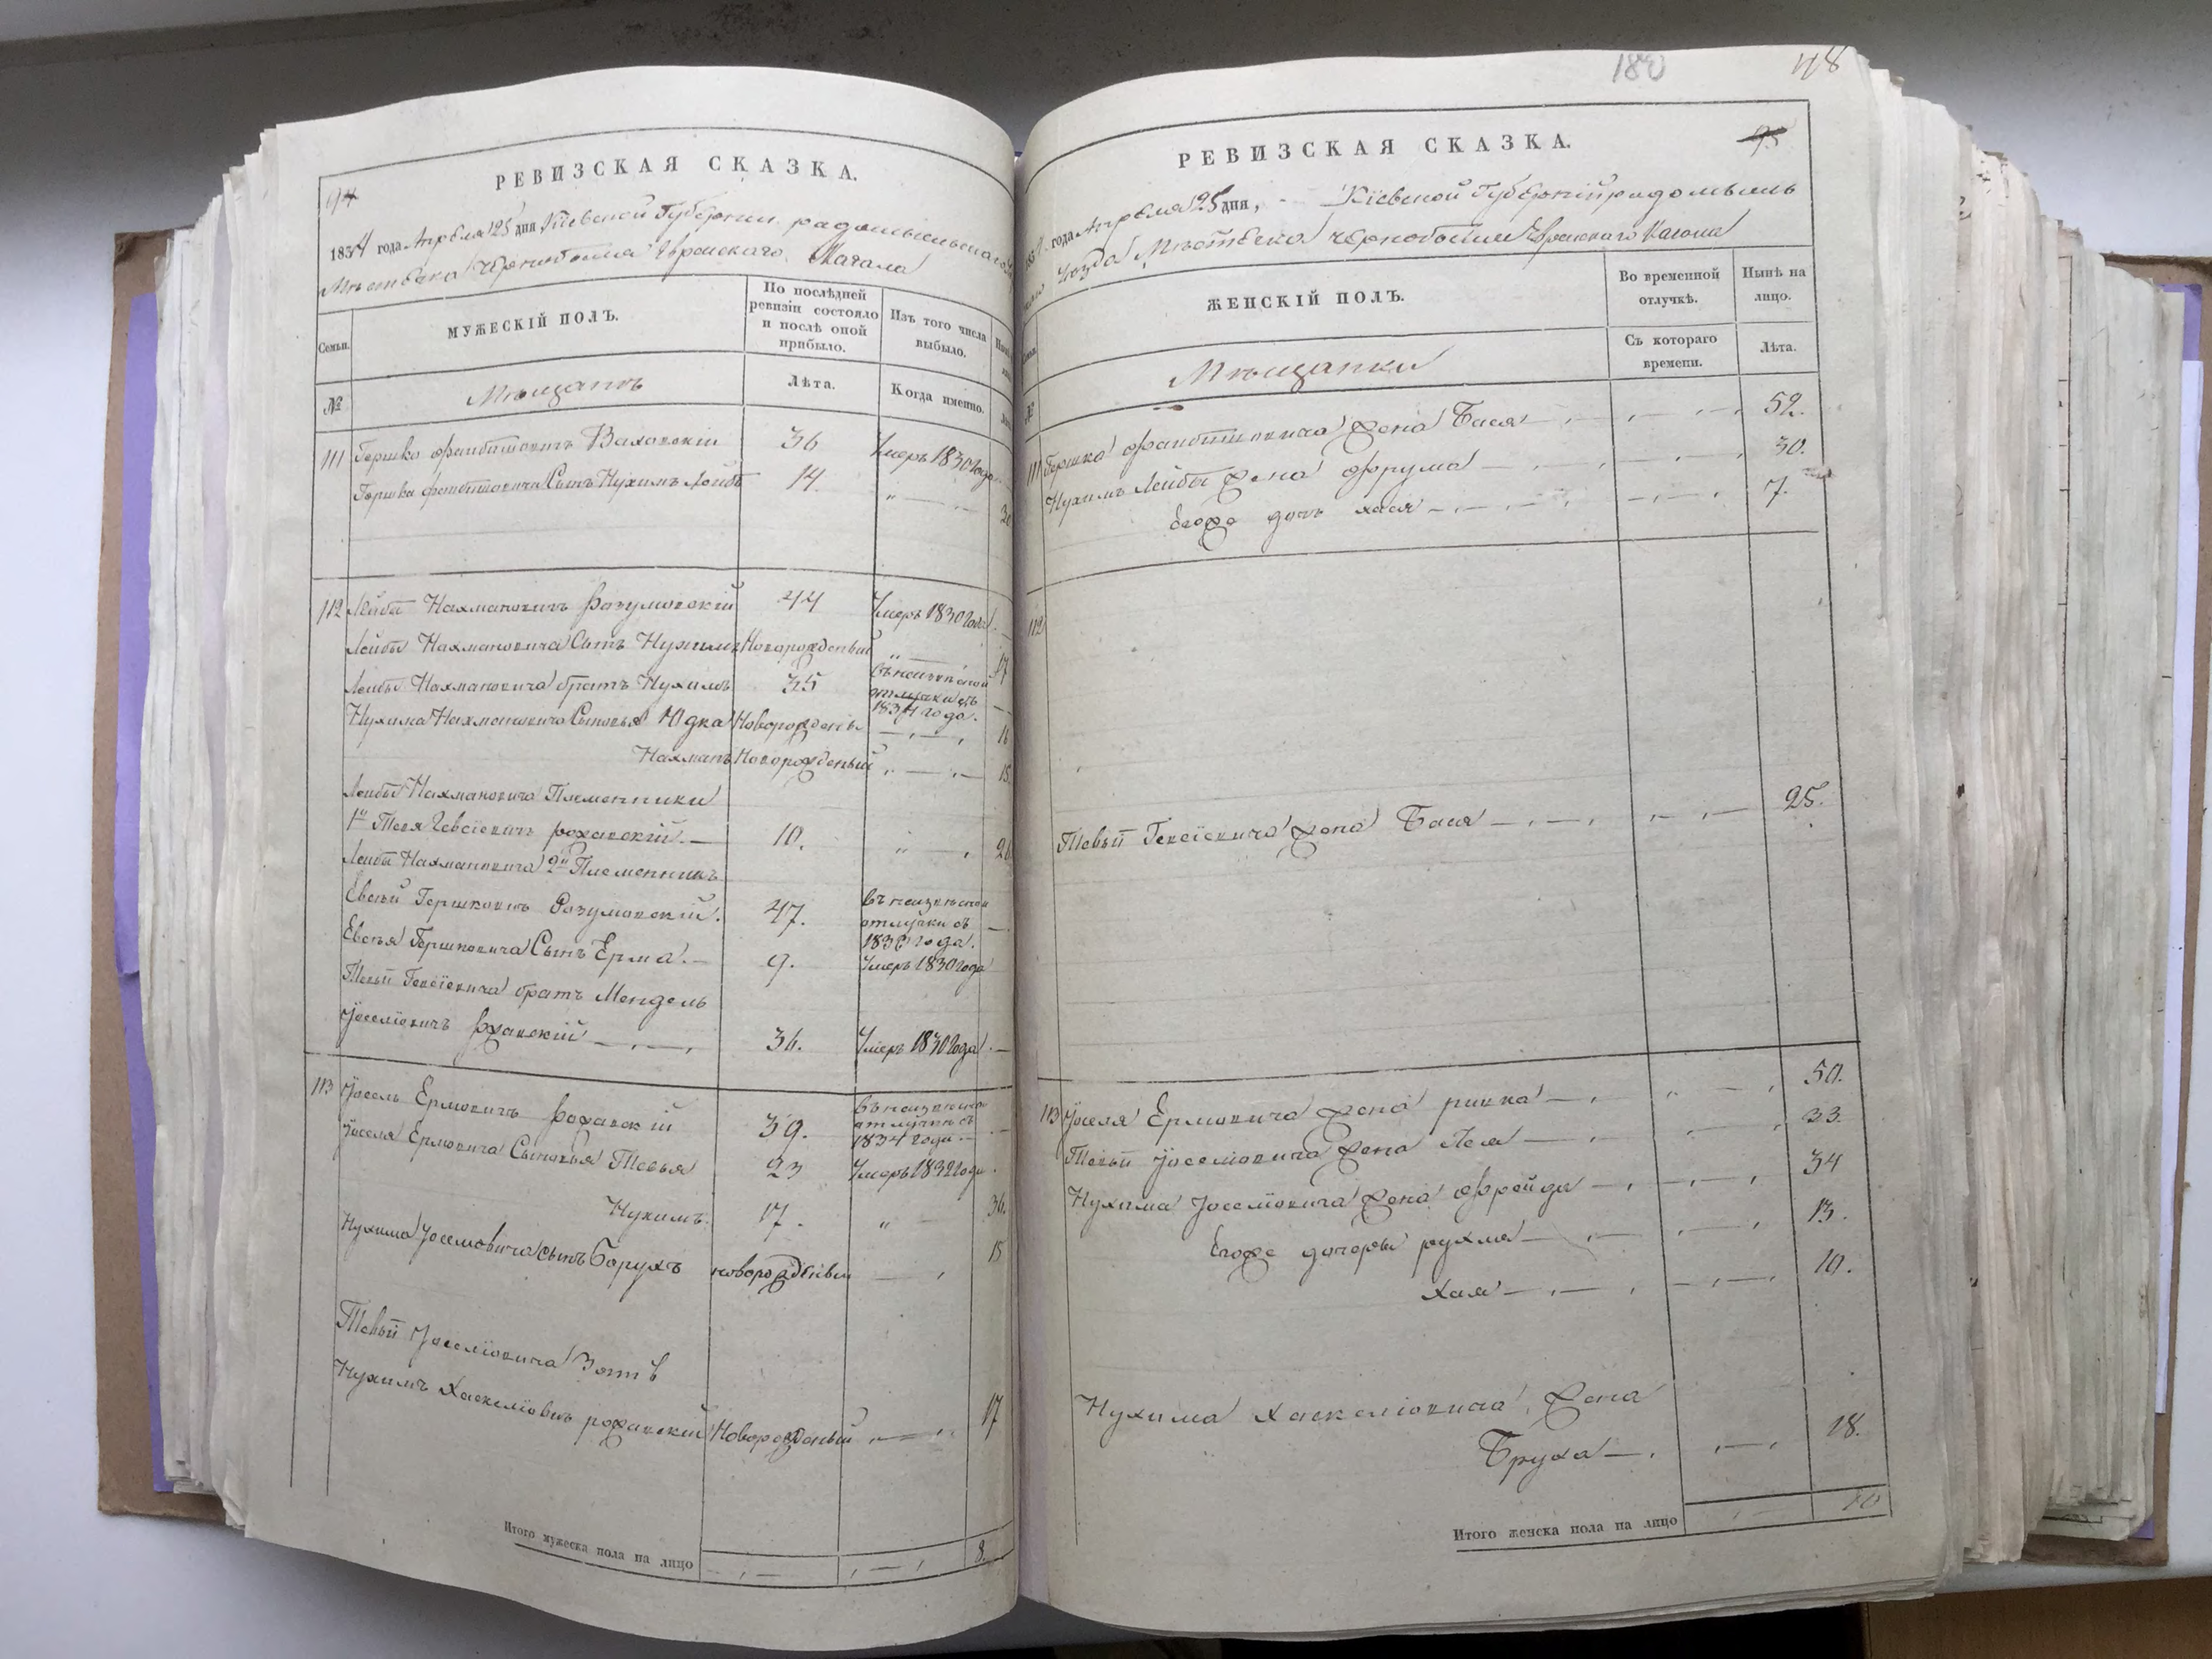 94
РЕВИЗСКАЯ СКАЗКА.
1834 года Апреля 25 дня Кіевской Губерніи радомысльскаго
Мѣстечка Чернобыля Еврейскаго Кагала
Семьи.
МУЖЕСКІЙ ПОЛЪ.
По послѣдней ревизіи состояло и послѣ оной прибыло.
Изъ того числа выбыло.
№
Мѣщанъ
Лѣта.
Когда именно.
111 Гершко Файбишовичъ Валовскій 36 Умеръ 1830 года
Гершка Файбишовича Сынъ Нухимъ Лейбъ 14
112 Лейба Нахмановичъ Розумовскій 44 Умеръ 1830 года
Лейбы Нахмановича Сынъ Нухимъ Новорожденый 17
Лейбы Нахмановича братъ Нухимъ 35 въ неизвѣстной отлучки съ 1834 года.
Нухима Нахмановича Сыновья Юдка Новорожденый 16
Нахманъ Новорожденый 15
Лейбы Нахмановича Племенники
1й Тевя Гевсіевичъ рохавскій. 10. 26
Лейбы Нахмановича 2й Племенникъ
Евсѣй Гершковичъ Розумовскій. 47. въ неизвѣстной отлучки съ 1830 года.
Евсѣя Гершковича Сынъ Ерма. 9. Умеръ 1830 года
Тевьи Гевсіевича братъ Мендель
Іоселіовичъ 36. Умеръ 1830 года
113 Іосель Ермовичъ рохавскій 39. въ неизвѣстной отлучкѣ съ 1834 года
Іоселя Ермовича Сыновья Тевья 23 Умеръ 1832 года
Нухимъ. 17. 36.
Нухима Іоселіовича сынъ Борухъ новорожденый 15
Тевьи Іоселіовича Зять
Нухимъ Хаскеліовичъ рохавскій Новорожденый 17
Итого мужеска пола на лицо 8.
180
48
95
РЕВИЗСКАЯ СКАЗКА.
года Апреля 25 дня, Кіевской Губерній радомысль
Уѣзда Мѣстечка Чернобыля Еврейскаго Кагала
ЖЕНСКІЙ ПОЛЪ.
Во временной отлучкѣ.
Нынѣ на лицо.
№
Мѣщанки
Съ котораго времени.
Лѣта.
111 Гершка Файбишовича жена Бася 52.
Нухимъ Лейбы жена Фрума 30.
Егоже дочь хася 7.
112
Тевьи Гевсіевича жена Бася 25.
113 Іоселя Ермовича жена ривка 50.
Тевьи Іоселіовича жена Лея 33.
Нухима Іоселіовича жена Фрейда 34
Егоже дочеры рухля 13.
Хая 10.
Нухима Хаскеліовича жена
Бруха 18.
Итого женска пола на лицо 10